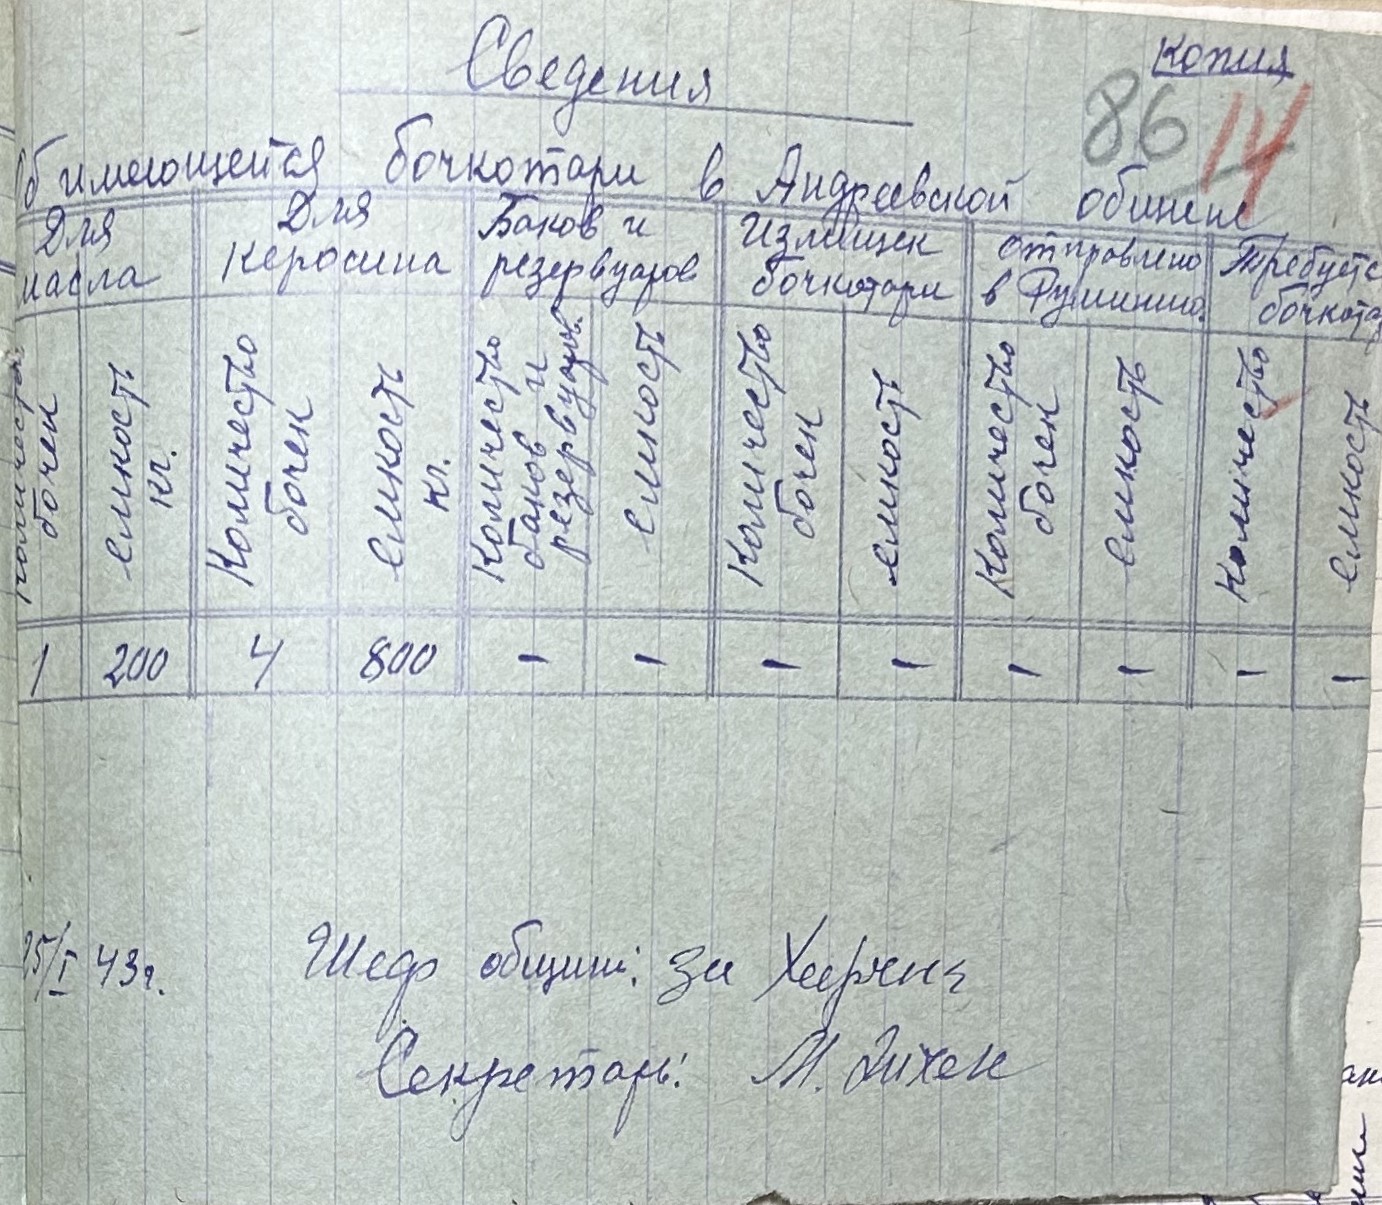 Копия
Сведения
86 14
об имеющейся бочкотари в Андреевской общине
Для масла | Для керосина | Баков и резервуаров | Излишек бочкотари | отправлено в Румынию. | Требуетс бочкота
количество бочек | емкость кг. | Количество бочек | емкость кг. | Количество баков и резервуаров. | емкость | Количество бочек | емкость | Количество бочек | емкость | Количество | емкость
1 | 200 | 4 | 800 | - | - | - | - | - | - | - | -
25/I 43г.
Шеф общины: за
Секретарь: М.